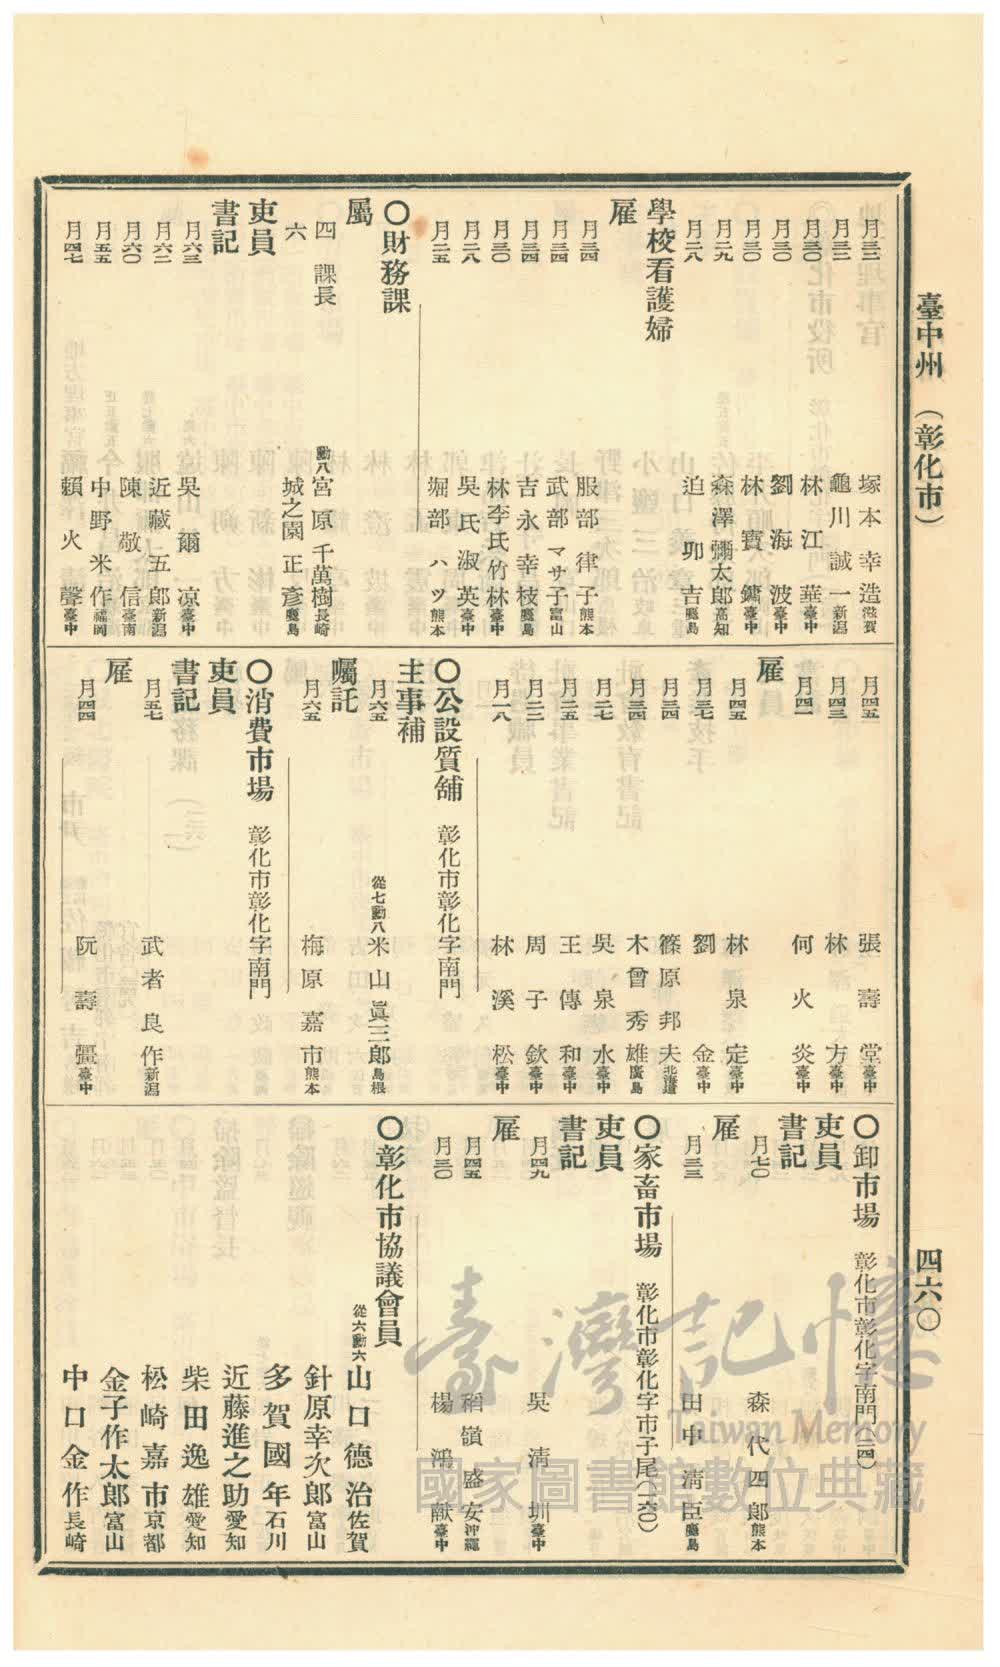 臺中州 (彰化市)
四六〇
月三二 塚本幸造 滋賀
月三二 龜川誠一 新潟
月三〇 林江華 臺中
月三〇 劉海波 臺中
月三〇 林寶鏞 臺中
月二九 森澤彌太郎 高知
月二八 迫卯吉 鹿島
學校看護婦
雇
月三四 服部律子 熊本
月三四 武部マサ子 富山
月三四 吉永幸枝 鹿島
月三〇 林李氏竹林 臺中
月二八 吳氏淑英 臺中
月二五 堀部ハツ 熊本
〇財務課
屬
四 課長 勳八 宮原千萬樹 長崎
六 城之園正彥 鹿島
吏員
書記
月六三 吳爾凉 臺中
月六二 近藏五郎 新潟
月六〇 陳敬信 臺南
月五五 中野米作 福岡
月四七 賴火聲 臺中
月四五 張壽堂 臺中
月四三 林方 臺中
月四一 何火炎 臺中
雇
月四五 林泉定 臺中
月三七 劉金 臺中
月三四 篠原邦夫 北海道
月三四 木曾秀雄 廣島
月二七 吳泉水 臺中
月二五 王傳和 臺中
月二二 周子欽 臺中
月一八 林溪松 臺中
〇公設質舖 彰化市彰化字南門
主事補
月六五 從七勳八 米山眞三郎 島根
囑託
月六五 梅原嘉市 熊本
〇消費市場 彰化市彰化字南門
吏員
書記
月五七 武者良作 新潟
雇
月四四 阮壽彊 臺中
〇卸市場 彰化市彰化字南門(二四)
吏員
書記
月七〇 森代四郎 熊本
雇
月三三 田中淸臣 鹿島
〇家畜市場 彰化市彰化字市子尾(一六〇)
吏員
書記
月四九 吳淸圳 臺中
雇
月四五 稻嶺盛安 沖繩
月三〇 楊鴻猷 臺中
〇彰化市協議會員
從六勳六 山口德治 佐賀
針原幸次郎 富山
多賀國年 石川
近藤進之助 愛知
柴田逸雄 愛知
松崎嘉市 京都
金子作太郎 富山
中口金作 長崎
臺灣記憶
Taiwan Memory
國家圖書館數位典藏